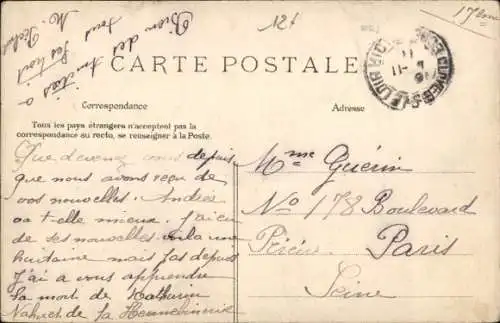 M. Richard
Bien des
amitiés a
tous
Les trois
12f
17eme
CARTE POSTALE
Correspondance
Adresse
Tous les pays étrangers n'acceptent pas la
correspondance au recto, se renseigner à la Poste.
Que devenez vous depuis
que nous avons reçu de
vos nouvelles. Andrée
va t-elle mieux. J'ai eu
de ses nouvelles voila une
huitaine mais pas depuis
J'ai a vous apprendre
la mort de Katharin
de la Hennebinerie
Mme Guérin
No 178 Boulevard
Paris
Seine